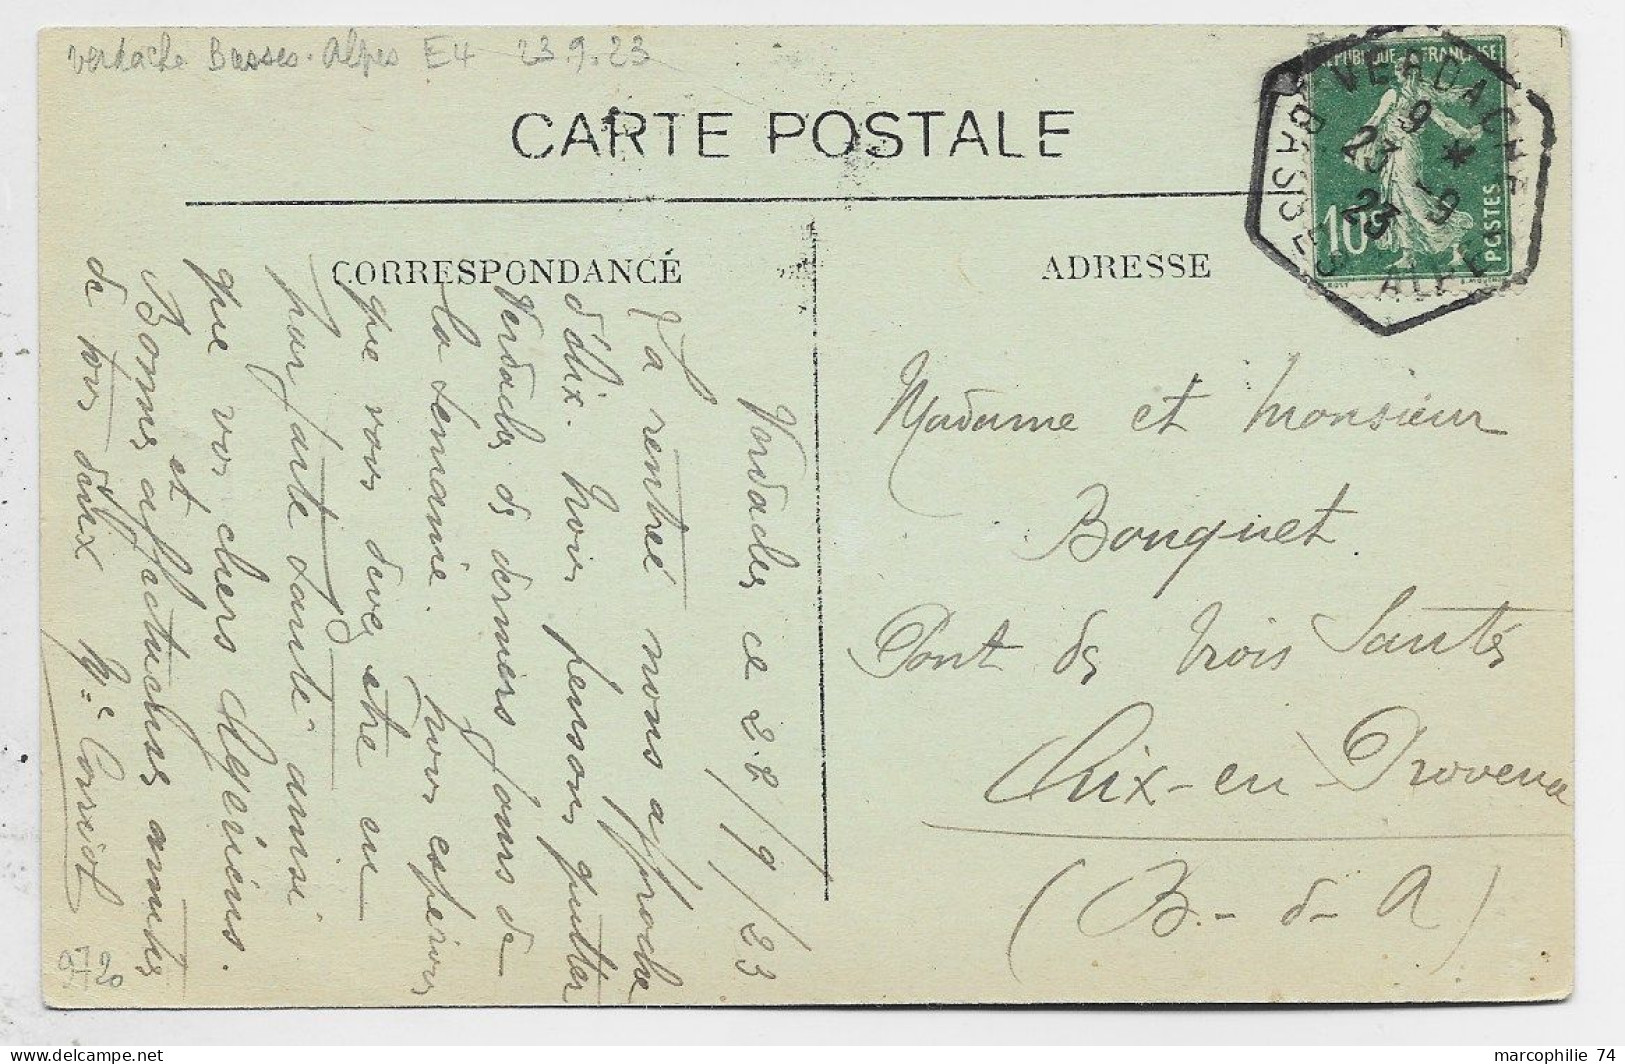 Verdache Basses-Alpes E4 23.9.23
CARTE POSTALE
CORRESPONDANCE
ADRESSE
VERDACHE
BASSES ALPES
9 *
23 -9
23
REPUBLIQUE FRANÇAISE
10c
POSTES
Verdaches ce 22/9/23
La rentrée nous approche
d'Aix. nous pensons quitter
Verdaches ds derniers jours de
la semaine. nous espérons
que vous devez être en
parfaite santé ainsi
que vos chers Algériens.
et
Bonnes affectueuses amitiés
de tous deux
Madame et Monsieur
Bouquet.
Pont des trois Sautés
Aix-en-Provence
(B.-d-R)
9720
marcophilie 74